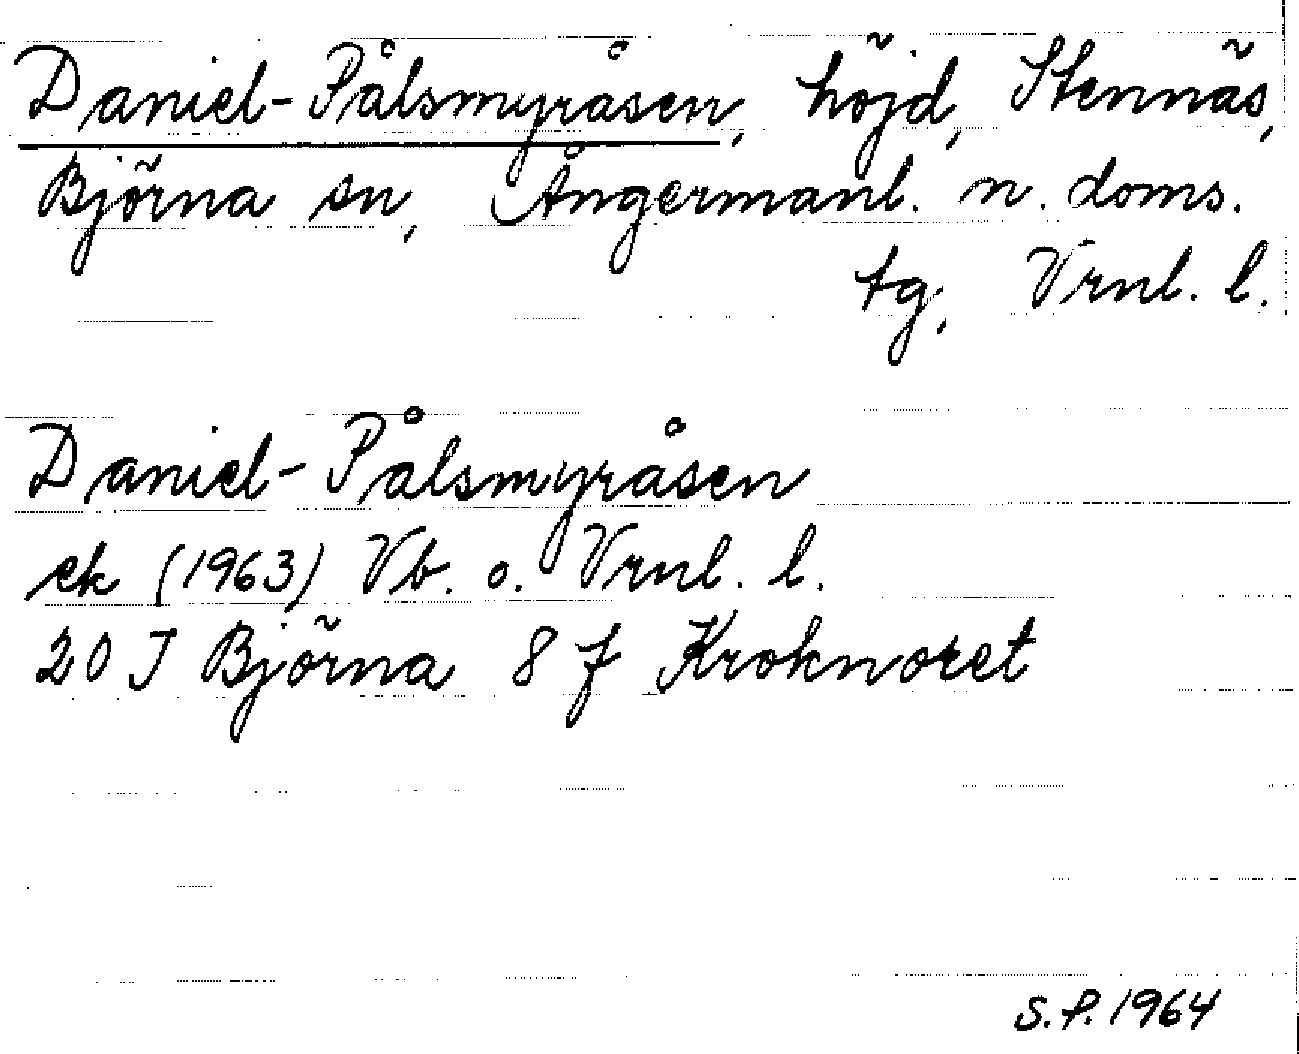 Daniel-Pålsmyråsen, höjd, Stennäs,
Björna sn, Ångermanl. n. doms.
tg, Vrnl. l.
Daniel-Pålsmyråsen
ek (1963) Vb. o. Vrnl. l.
20 J Björna 8 f Kroknoret
S.P. 1964